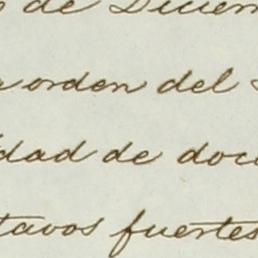 de Diciem
orden del
dad de doc
tavos fuertes